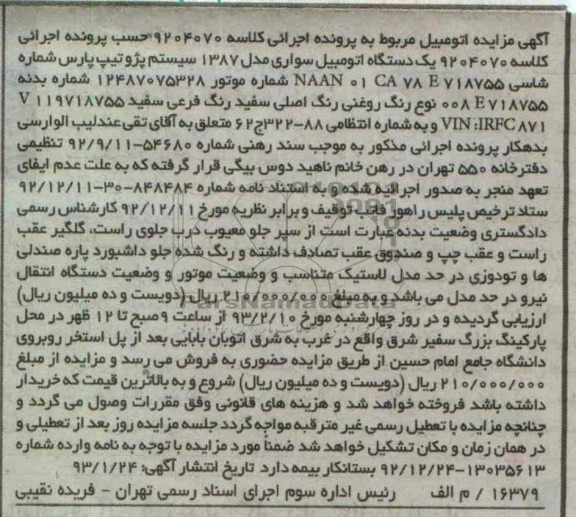 آگهی مزایده اتومبیل مربوط به پرونده اجرائی کلاسه ۹۲۰۴۰۷۰ حسب پرونده اجرائی
کلاسه ۹۲۰۴۰۷۰ یک دستگاه اتومبیل سواری مدل ۱۳۸۷ سیستم پژو تیپ پارس شماره
شاسی NAAN ۰۱ CA ۷۸ E ۷۱۸۷۵۵ شماره موتور ۱۲۴۸۷۰۷۵۳۲۸ شماره بدنه
۰۰۸ E ۷۱۸۷۵۵ نوع رنگ روغنی رنگ اصلی سفید رنگ فرعی سفید V ۱۱۹۷۱۸۷۵۵
VIN :IRFC ۸۷۱ و به شماره انتظامی ۸۸-۳۲۲ج۶۲ متعلق به آقای تقی عندلیب الوارسی
بدهکار پرونده اجرائی مذکور به موجب سند رهنی شماره ۵۴۶۸۰-۹۲/۹/۱۱ تنظیمی
دفترخانه ۵۵۰ تهران در رهن خانم ناهید دوس بیگی قرار گرفته که به علت عدم ایفای
تعهد منجر به صدور اجرائیه شده و به استناد نامه شماره ۸۴۸۴۸۴-۳۰-۹۲/۱۲/۱۱
ستاد ترخیص پلیس راهور فاتب توقیف و برابر نظریه مورخ ۹۲/۱۲/۱۱ کارشناس رسمی
دادگستری وضعیت بدنه عبارت است از سپر جلو معیوب درب جلوی راست، گلگیر عقب
راست و عقب چپ و صندوق عقب تصادف داشته و رنگ شده جلو داشبورد پاره صندلی
ها و تودوزی در حد مدل لاستیک متناسب و وضعیت موتور و وضعیت دستگاه انتقال
نیرو در حد مدل می باشد و به مبلغ ۲۱۰/۰۰۰/۰۰۰ ریال (دویست و ده میلیون ریال)
ارزیابی گردیده و در روز چهارشنبه مورخ ۹۳/۲/۱۰ از ساعت ۹ صبح تا ۱۲ ظهر در محل
پارکینگ بزرگ سفیر شرق واقع در غرب به شرق اتوبان بابایی بعد از پل استخر روبروی
دانشگاه جامع امام حسین از طریق مزایده حضوری به فروش می رسد و مزایده از مبلغ
۲۱۰/۰۰۰/۰۰۰ ریال (دویست و ده میلیون ریال) شروع و به بالاترین قیمت که خریدار
داشته باشد فروخته خواهد شد و هزینه های قانونی وفق مقررات وصول می گردد و
چنانچه مزایده با تعطیل رسمی غیر مترقبه مواجه گردد جلسه مزایده روز بعد از تعطیلی و
در همان زمان و مکان تشکیل خواهد شد ضمناً مورد مزایده با توجه به نامه وارده شماره
۱۳۰۳۵۶۱۳-۹۲/۱۲/۲۴ بستانکار بیمه دارد. تاریخ انتشار آگهی: ۹۳/۱/۲۴
۱۶۳۷۹ / م الف رئیس اداره سوم اجرای اسناد رسمی تهران - فریده نقیبی